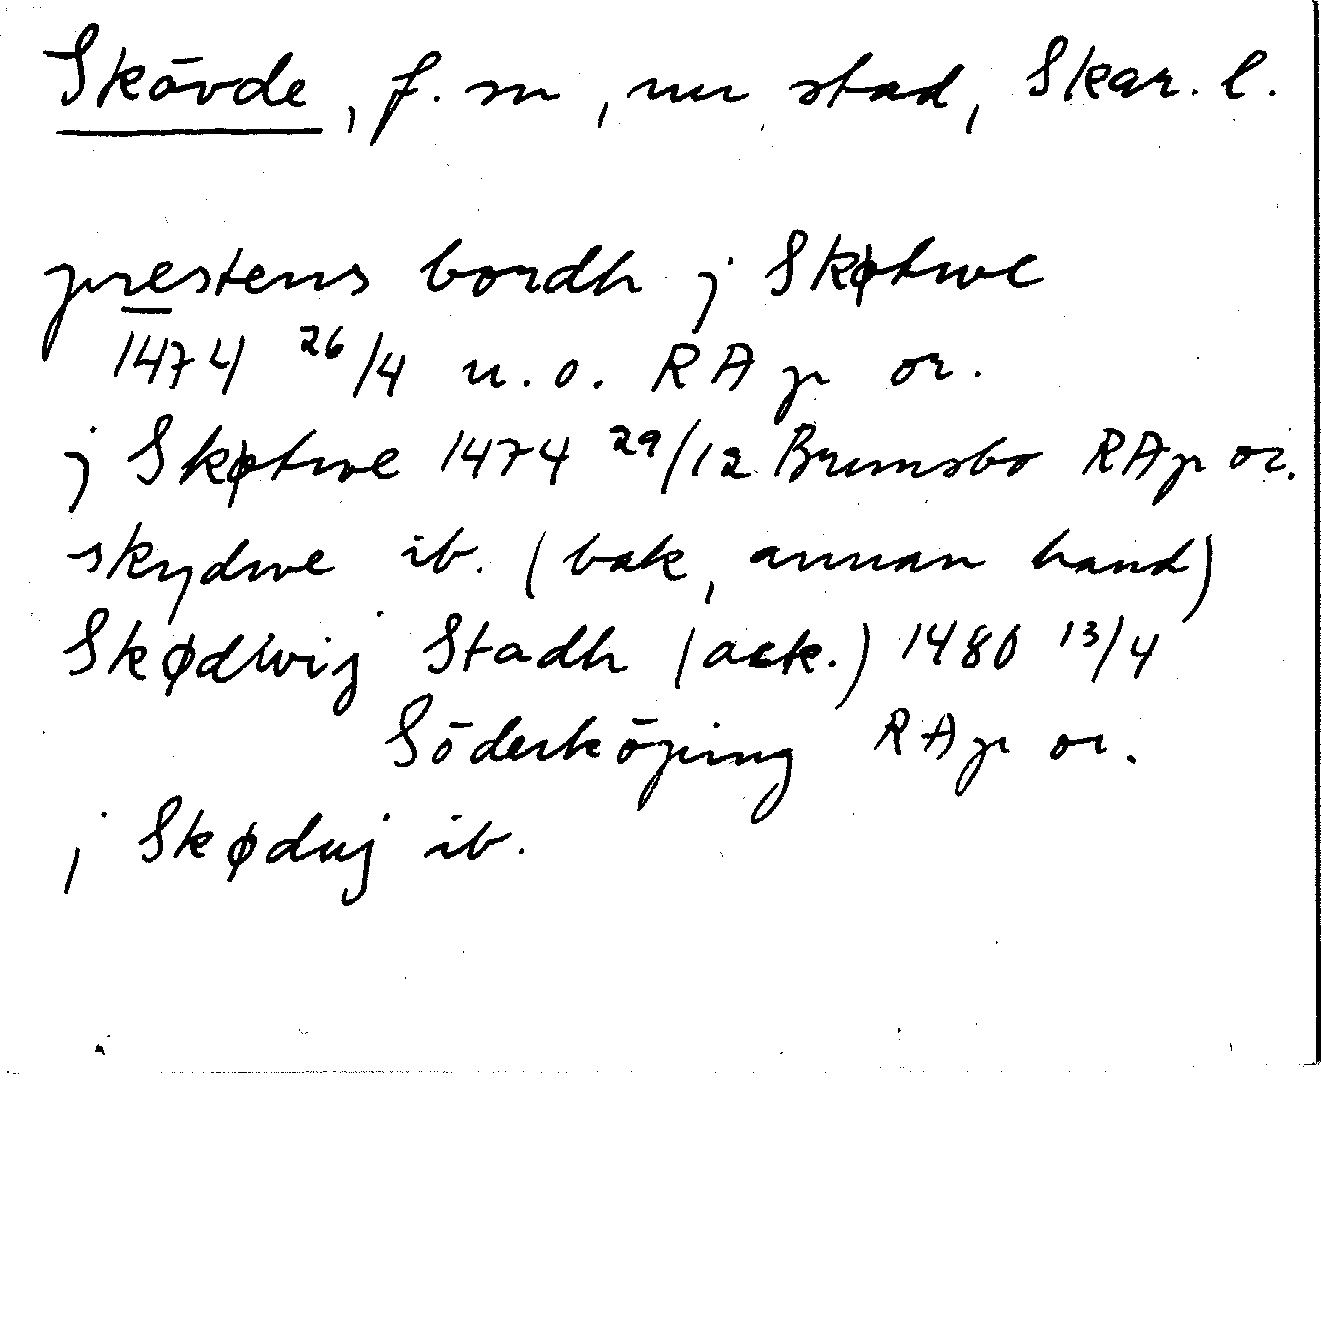 Skövde, f. sn, nu stad, Skar. l.
prestens bordh j Skøtwe
1474 26/4 u.o. RAp or.
j Skøtwe 1474 29/12 Brumsbo RAp or.
skydwe ib. (bak, annan hand)
Skødwij Stadh (ack.) 1480 13/4
Söderköping RAp or.
j Skøduj ib.